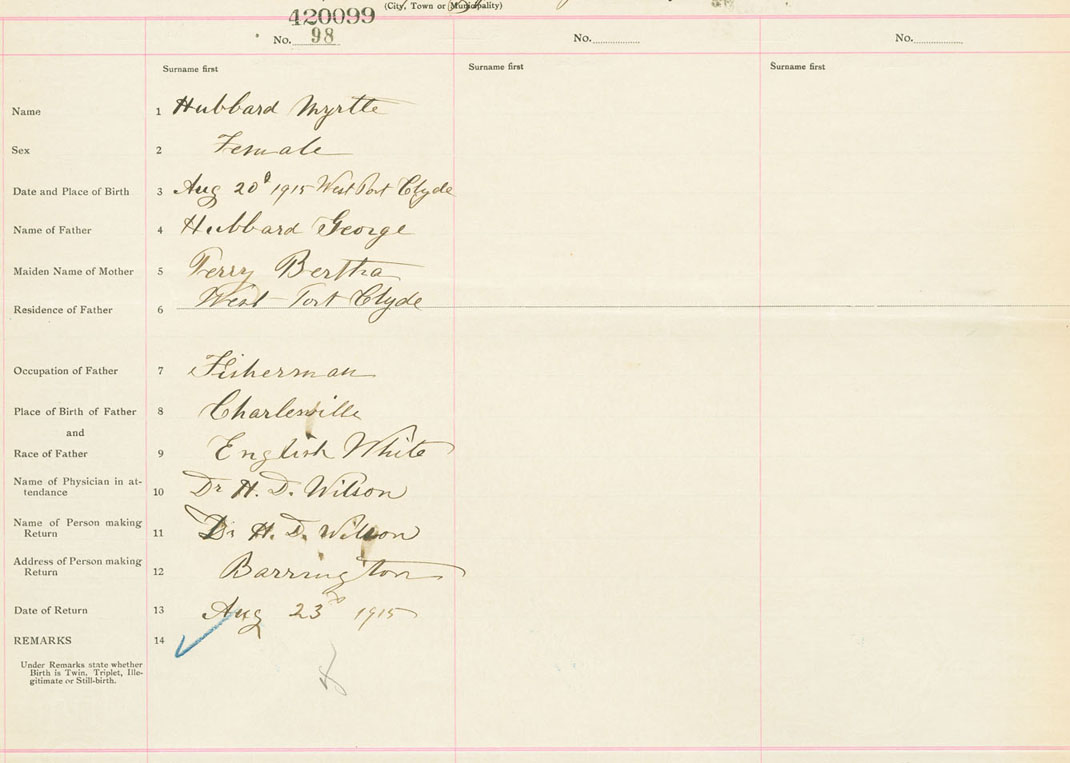 (City, Town or Municipality)
420099
No. 98
No.
No.
Surname first
Surname first
Surname first
Name 1 Hubbard Myrtle
Sex 2 Female
Date and Place of Birth 3 Aug 20th 1915 West Port Clyde
Name of Father 4 Hubbard George
Maiden Name of Mother 5 Perry Bertha
Residence of Father 6 West Port Clyde
Occupation of Father 7 Fisherman
Place of Birth of Father 8 Charlesville
and
Race of Father 9 English White
Name of Physician in at-
tendance 10 Dr H. D. Wilson
Name of Person making
Return 11 Dr H. D. Wilson
Address of Person making
Return 12 Barrington
Date of Return 13 Aug 23rd 1915
REMARKS 14
Under Remarks state whether
Birth is Twin, Triplet, Ille-
gitimate or Still-birth.